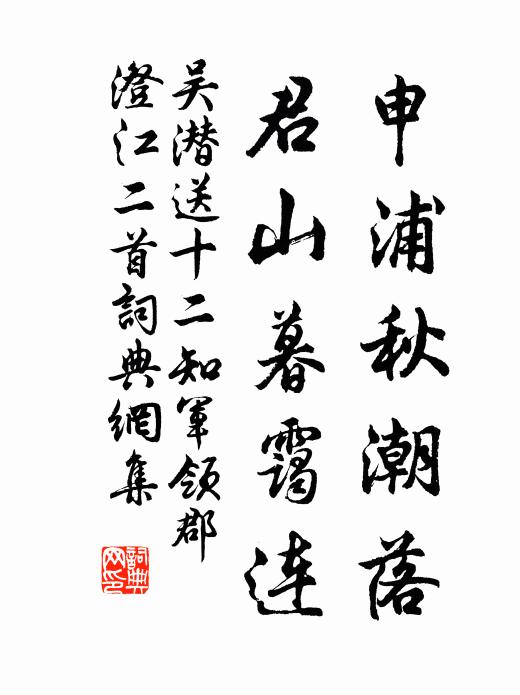 申浦秋潮落
君山暮霭连
吴潜送十二知军领郡
澄江二首詞典網集
詞典網印